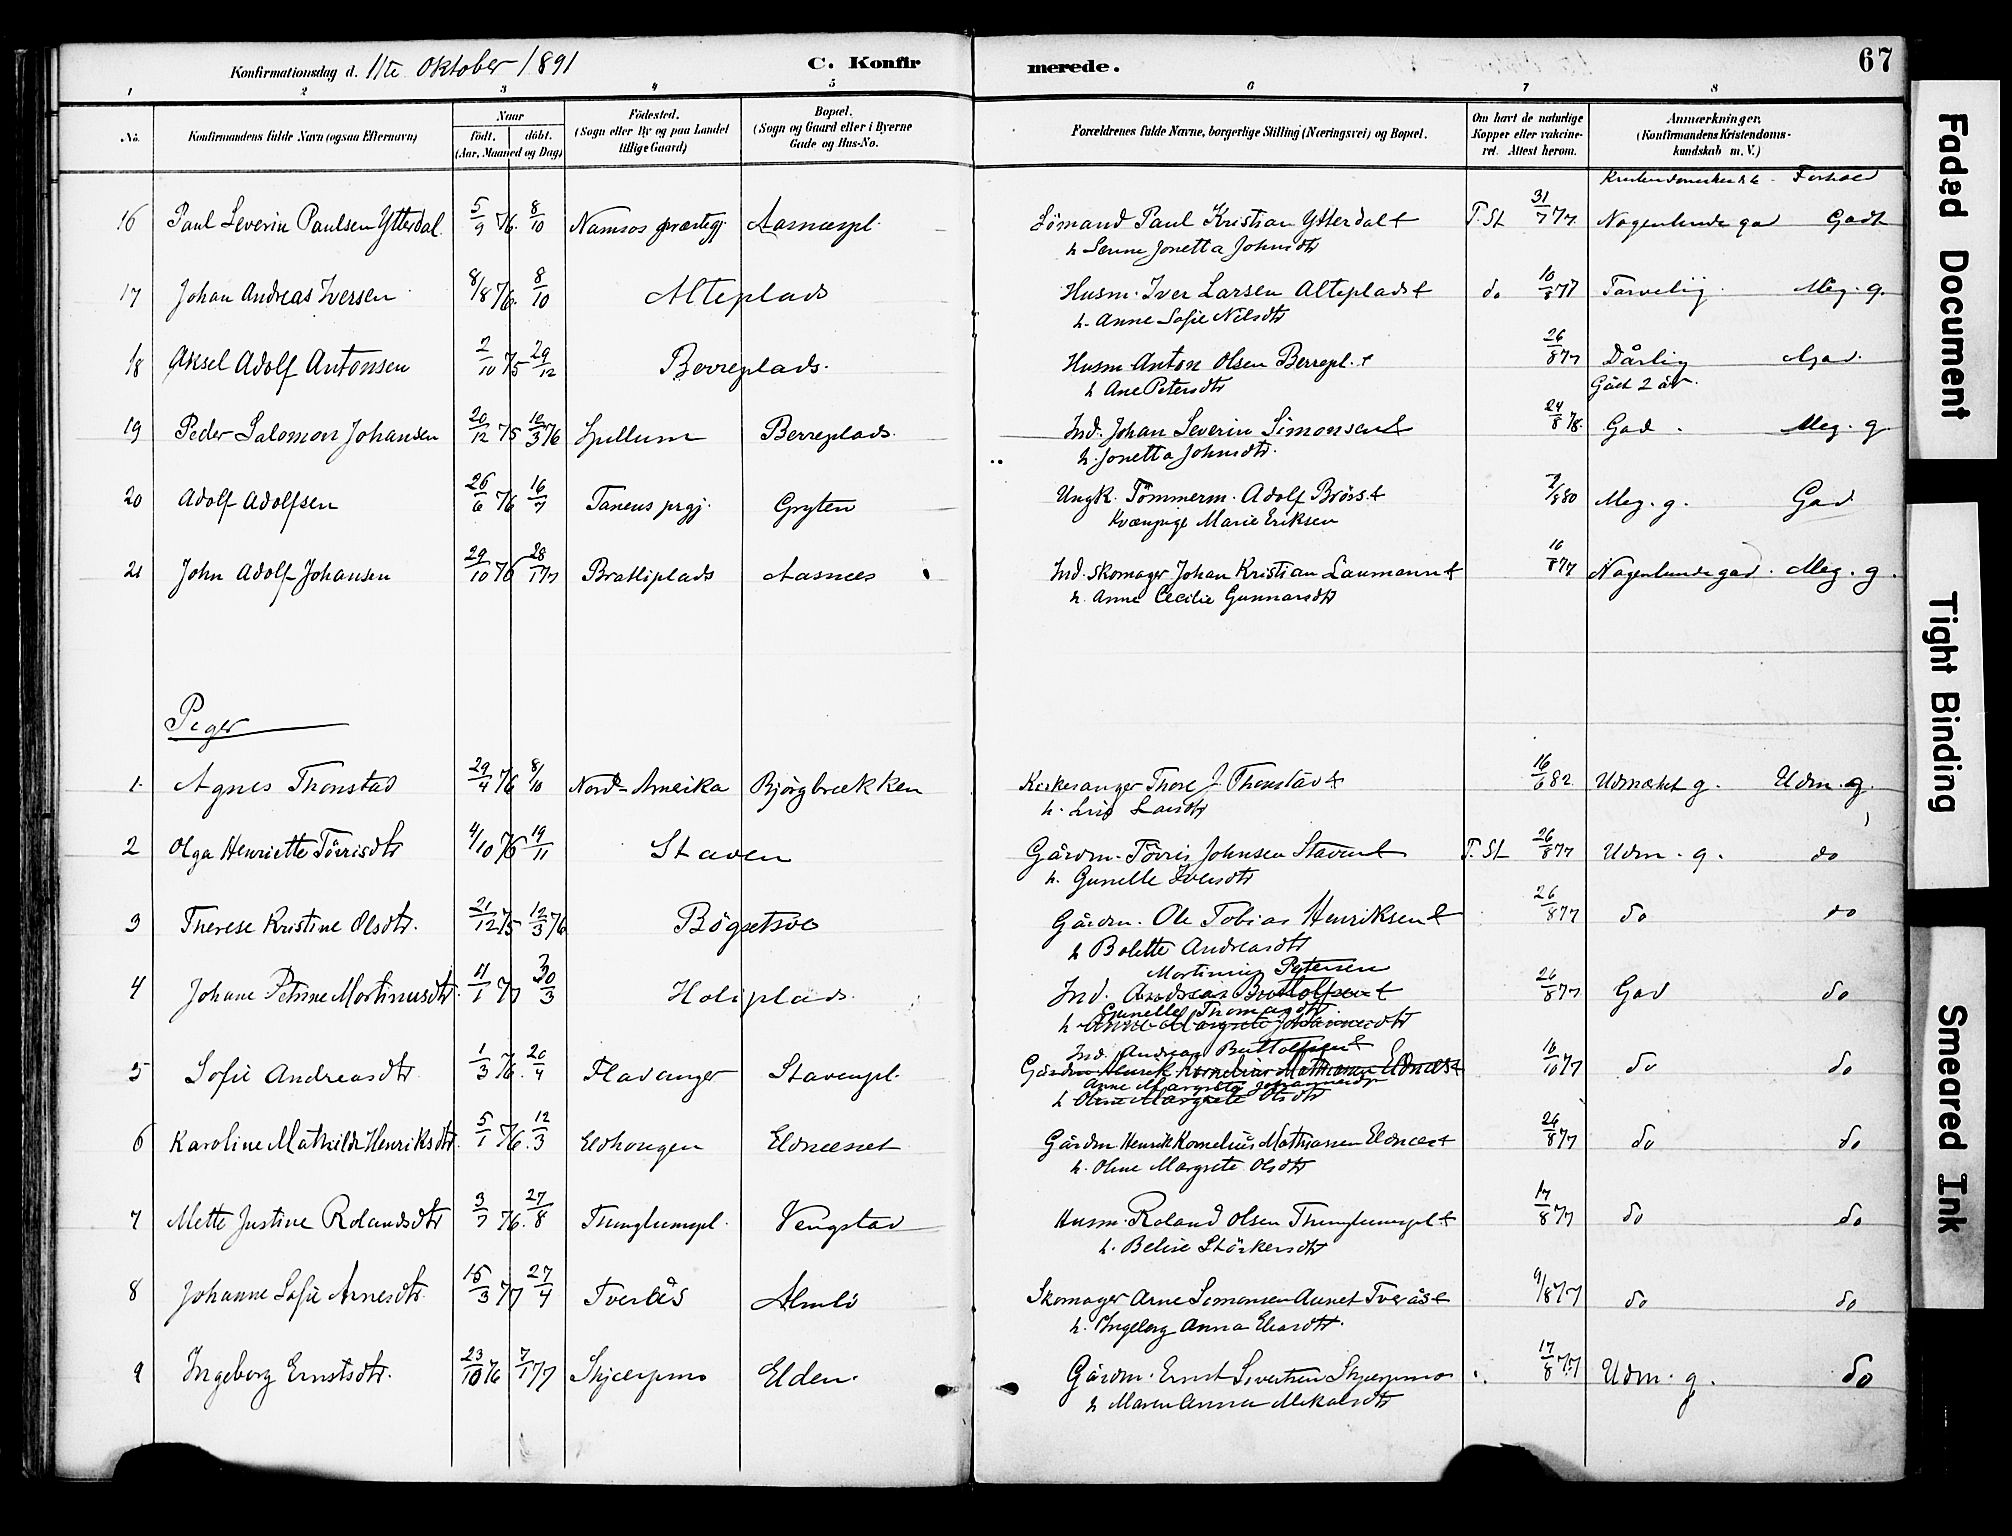 Konfirmationsdag d. 11te Oktober 1891 C. Konfirmerede. 67
1 2 3 4 5 6 7 8
No. Konfirmandens fulde Navn (ogsaa Efternavn) Naar født. døbt. (Aar, Maaned og Dag) Fødested. (Sogn eller By og paa Landet tillige Gaard) Bopæl. (Sogn og Gaard eller i Byerne Gade og Hus-No. Forældrenes fulde Navne, borgerlige Stilling (Næringsvei) og Bopæl. Om havt de naturlige Kopper eller vaccineret. Attest herom. Anmærkninger. (Konfirmandens Kristendomskundskab m. V.)
Forhold
16 Paul Severin Paulsen Ytterdal 5/9 76 8/10 Namsos præstegj. Aasnæspl. Paul Kristian Ytterdal & T. St 31/7 77 Nogenlunde god Godt
h. Jonetta Johnsdtr
17 Johan Andreas Iversen 8/8 76 8/10 Alteplads Husm. Iver Larsen Alteplads & do 10/8 77 Tarvelig Meg. g.
h. Anne Sofie Nilsdtr
18 Aksel Adolf Antonsen 2/10 75 29/12 Berreplads. Husm Anton Olsen Berrepl. & 26/8 77 Dårlig God
h Ane Petersdtr Gået 2 år.
19 Peder Salomon Johansen 20/12 75 12/3 76 Spillum Berreplads. Ind. Johan Severin Simonsen & 24/8 78. God. Meg. g
h. Jonetta Johnsdtr.
20 Adolf Adolfsen 26/6 76 16/7 Tanens prgj. Gryten Ungk. Tömmerm. Adolf Brörs & 2/8 80 Meg. g. God
Kvænpige Marie Eriksen
21 John Adolf Johansen 29/10 76 28/1 77 Bratliplads Aasnæs Ind. Skomager Johan Kristian Laumann & 16/8 77 Nogenlunde god. Meg. g.
h. Anne Cecilie Gunnarsdtr
Piger
1. Agnes Thonstad 29/4 76 8/10 Nord-Amerika Bjørgbrækken Kirkesanger Thore J. Thonstad & 16/6 82. Udmærket g. Udm. g.
h. Larsdtr
2 Olga Henriette Törrisdtr 4/10 76 19/11 Staven Gårdm. Törris Johnsen Staven & T. St 26/8 77 Udm. g. do
h. Gunelle Iversdtr
3 Therese Kristine Olsdtr. 21/12 75 12/3 76 Bögsetvo Gårdm. Ole Tobias Henriksen & 26/8 77 do do
h Bolette Andreasdtr
4 Johane Petrine Martinusdtr. 4/1 77 30/3 Holiplads. Martinus Petersen
Ind. Andreas Buttolfsen & 26/8 77 God do
Gunelle Thomasdtr
h Anne Margrete Johannesdtr
5 Sofie Andreasdtr 1/3 76. 20/4 Flavanger Stavenpl. Ind. Andreas Buttolfsen &
Gårdm Henrik Kornelius Mathiasen Eldnæs & 16/10 77 do do
Anne Margrete Johannesdtr
h Oline Margrete Olsdtr
6 Karoline Mathilde Henriksdtr. 5/1 76. 12/3 Eldhougen Eldnæsset Gårdm Henrik Kornelius Mathiassen Eldnæs & 26/8 77 do do
h. Oline Margrete Olsdtr
7 Mette Justine Rolandsdtr 3/7 76. 27/8 Thinglumspl. Vengstad Husm. Roland Olsen Thinglumspl & 17/8 77 do do
h. Belise Störkersdtr
8 Johanne Sofie Arnesdtr. 15/3 77 27/4 Tverås Almli Skomager Arne Simonsen Aunet Tverås & 9/8 77 do do
h. Ingeborg Anna Eliasdtr.
9 Ingeborg Ernstsdtr. 23/10 76 7/1 77 Skjærpmo Elden. Gårdm. Ernst Sivertsen Skjærpmo 17/8 77 Udm. g. do
h Maren Anna Mikalsdtr
Faded Document
Tight Binding
Smeared Ink